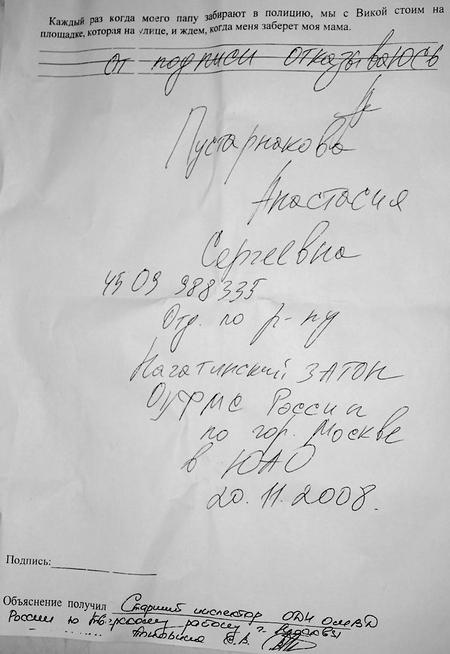 Каждый раз когда моего папу забирают в полицию, мы с Викой стоим на
площадке, которая на улице, и ждем, когда меня заберет моя мама.
от подписи отказываюсь
Пустарнакова
Анастасия
Сергеевна
45 09 988335
Отд. по р-ну
Нагатинский ЗАТОН
ОУФМС России
по гор. Москве
в ЮАО
20.11.2008.
Подпись:
Объяснение получил Старший инспектор ОДН ОМВД
России по району г.